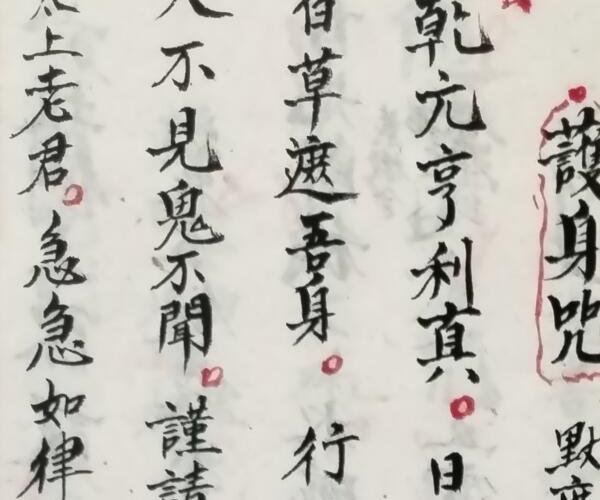 護身咒 默
乾元亨利真。日
草遮吾身。行
人不見鬼不聞。謹請
太上老君。急急如律